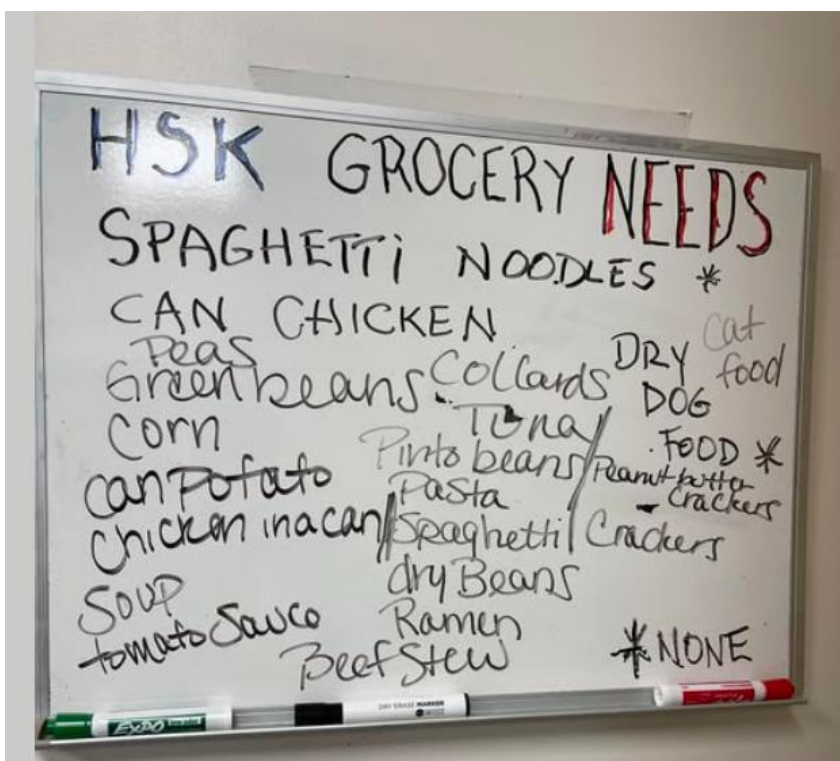 HSK GROCERY NEEDS
SPAGHETTi NOODLES *
CAN CHICKEN
Peas
Green beans
Corn
can potato
Chicken in a can
Soup
tomato Sauce
Collards
Tuna
Pinto beans
Pasta
Spaghetti
dry Beans
Ramen
Beef Stew
DRY
DOG
FOOD *
Cat
food
Peanut butter
Crackers
Crackers
* NONE
EXPO
DRY ERASE MARKER